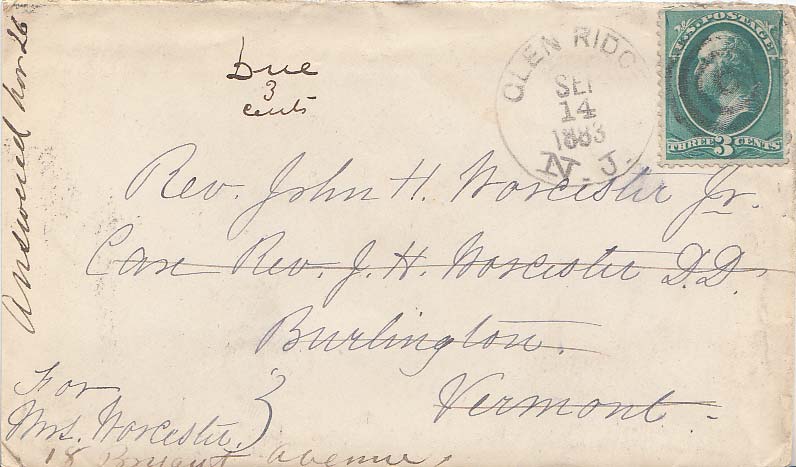 Answered Nov 26
Due
3
cents
GLEN RIDG
SEP
14
1883
N. J.
U.S. POSTAGE
THREE 3 CENTS
Rev. John H. Worcester Jr.
Care Rev. J. H. Worcester D.D.
Burlington.
Vermont.
For
Mrs. Worcester.
18 Bryant Avenue.